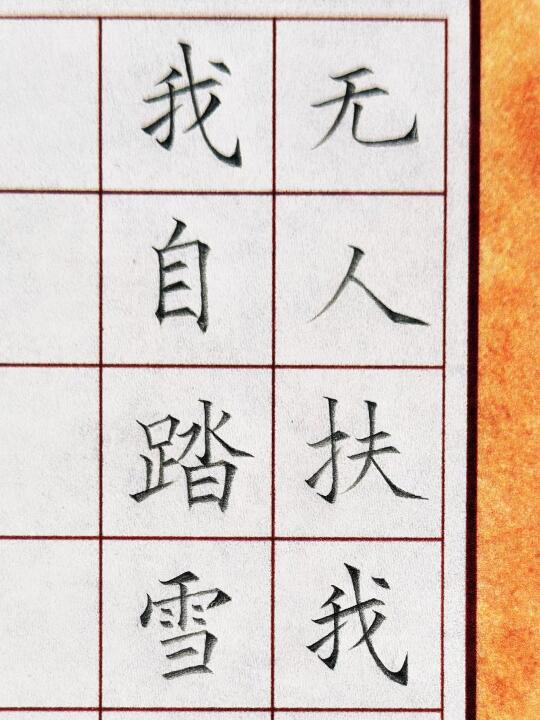 无人扶我
我自踏雪